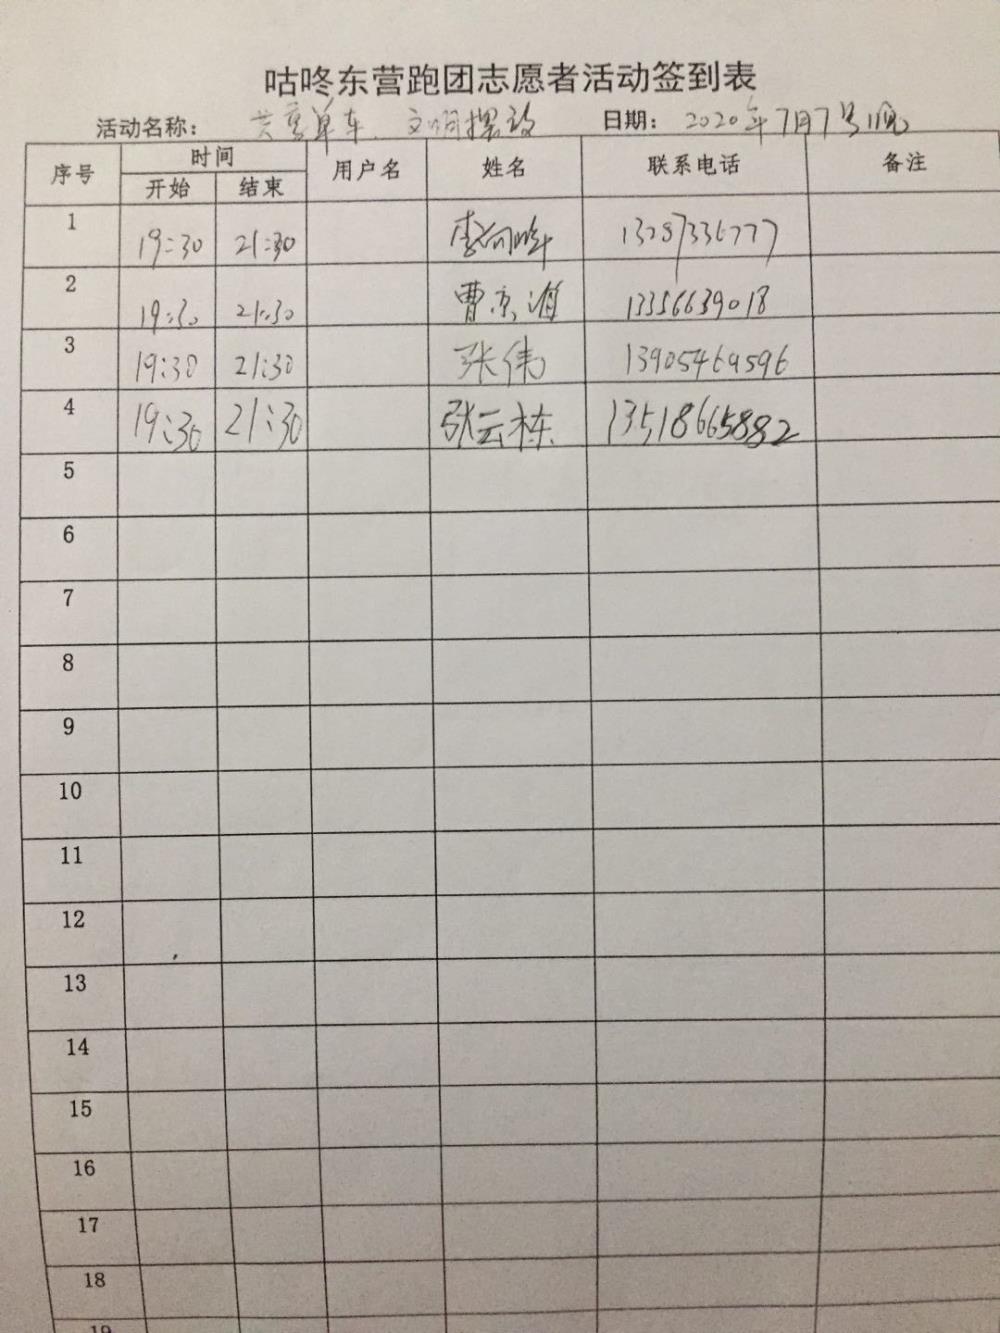 咕咚东营跑团志愿者活动签到表
活动名称： 共享单车、文明摆放 日期： 2020年7月7号晚
序号 时间 用户名 姓名 联系电话 备注
开始 结束
1 19:30 21:30 李向 13287336777
2 19:30 21:30 曹京 13356639018
3 19:30 21:30 张伟 13905469596
4 19:30 21:30 张云栋 13518665882
5
6
7
8
9
10
11
12
13
14
15
16
17
18
19